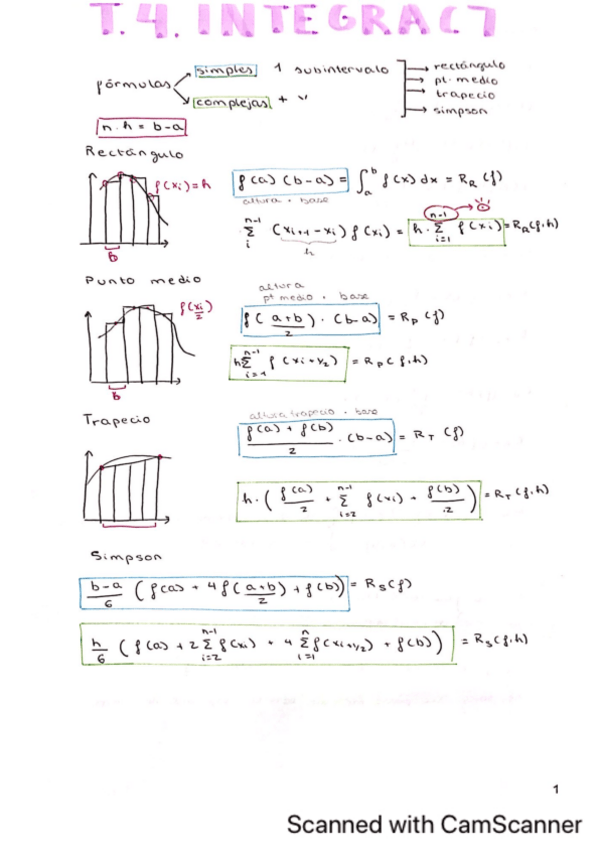 T.4. INTEGRAC
fórmulas
simples 1 subintervalo
complejas +
rectángulo
pt. medio
trapecio
simpson
n·h = b-a
Rectángulo
f(xi)=h
b
f(a) (b-a) = ∫_a^b f(x) dx = R_R (f)
altura · base
Σ_i^{n-1} (x_{i+1} - x_i) f(x_i) = h · Σ_{i=1}^{n-1} f(x_i) = R_R(f,h)
h
Punto medio
f(xi/2)
b
altura
pt medio · base
f((a+b)/2) · (b-a) = R_P (f)
h Σ_{i=1}^{n-1} f(x_{i+1/2}) = R_P(f,h)
Trapecio
altura trapecio · base
(f(a) + f(b))/2 · (b-a) = R_T (f)
h · (f(a)/2 + Σ_{i=2}^{n-1} f(x_i) + f(b)/2) = R_T(f,h)
Simpson
(b-a)/6 (f(a) + 4f((a+b)/2) + f(b)) = R_S(f)
h/6 (f(a) + 2 Σ_{i=2}^{n-1} f(x_i) + 4 Σ_{i=1}^{n} f(x_{i+1/2}) + f(b)) = R_S(f,h)
1
Scanned with CamScanner